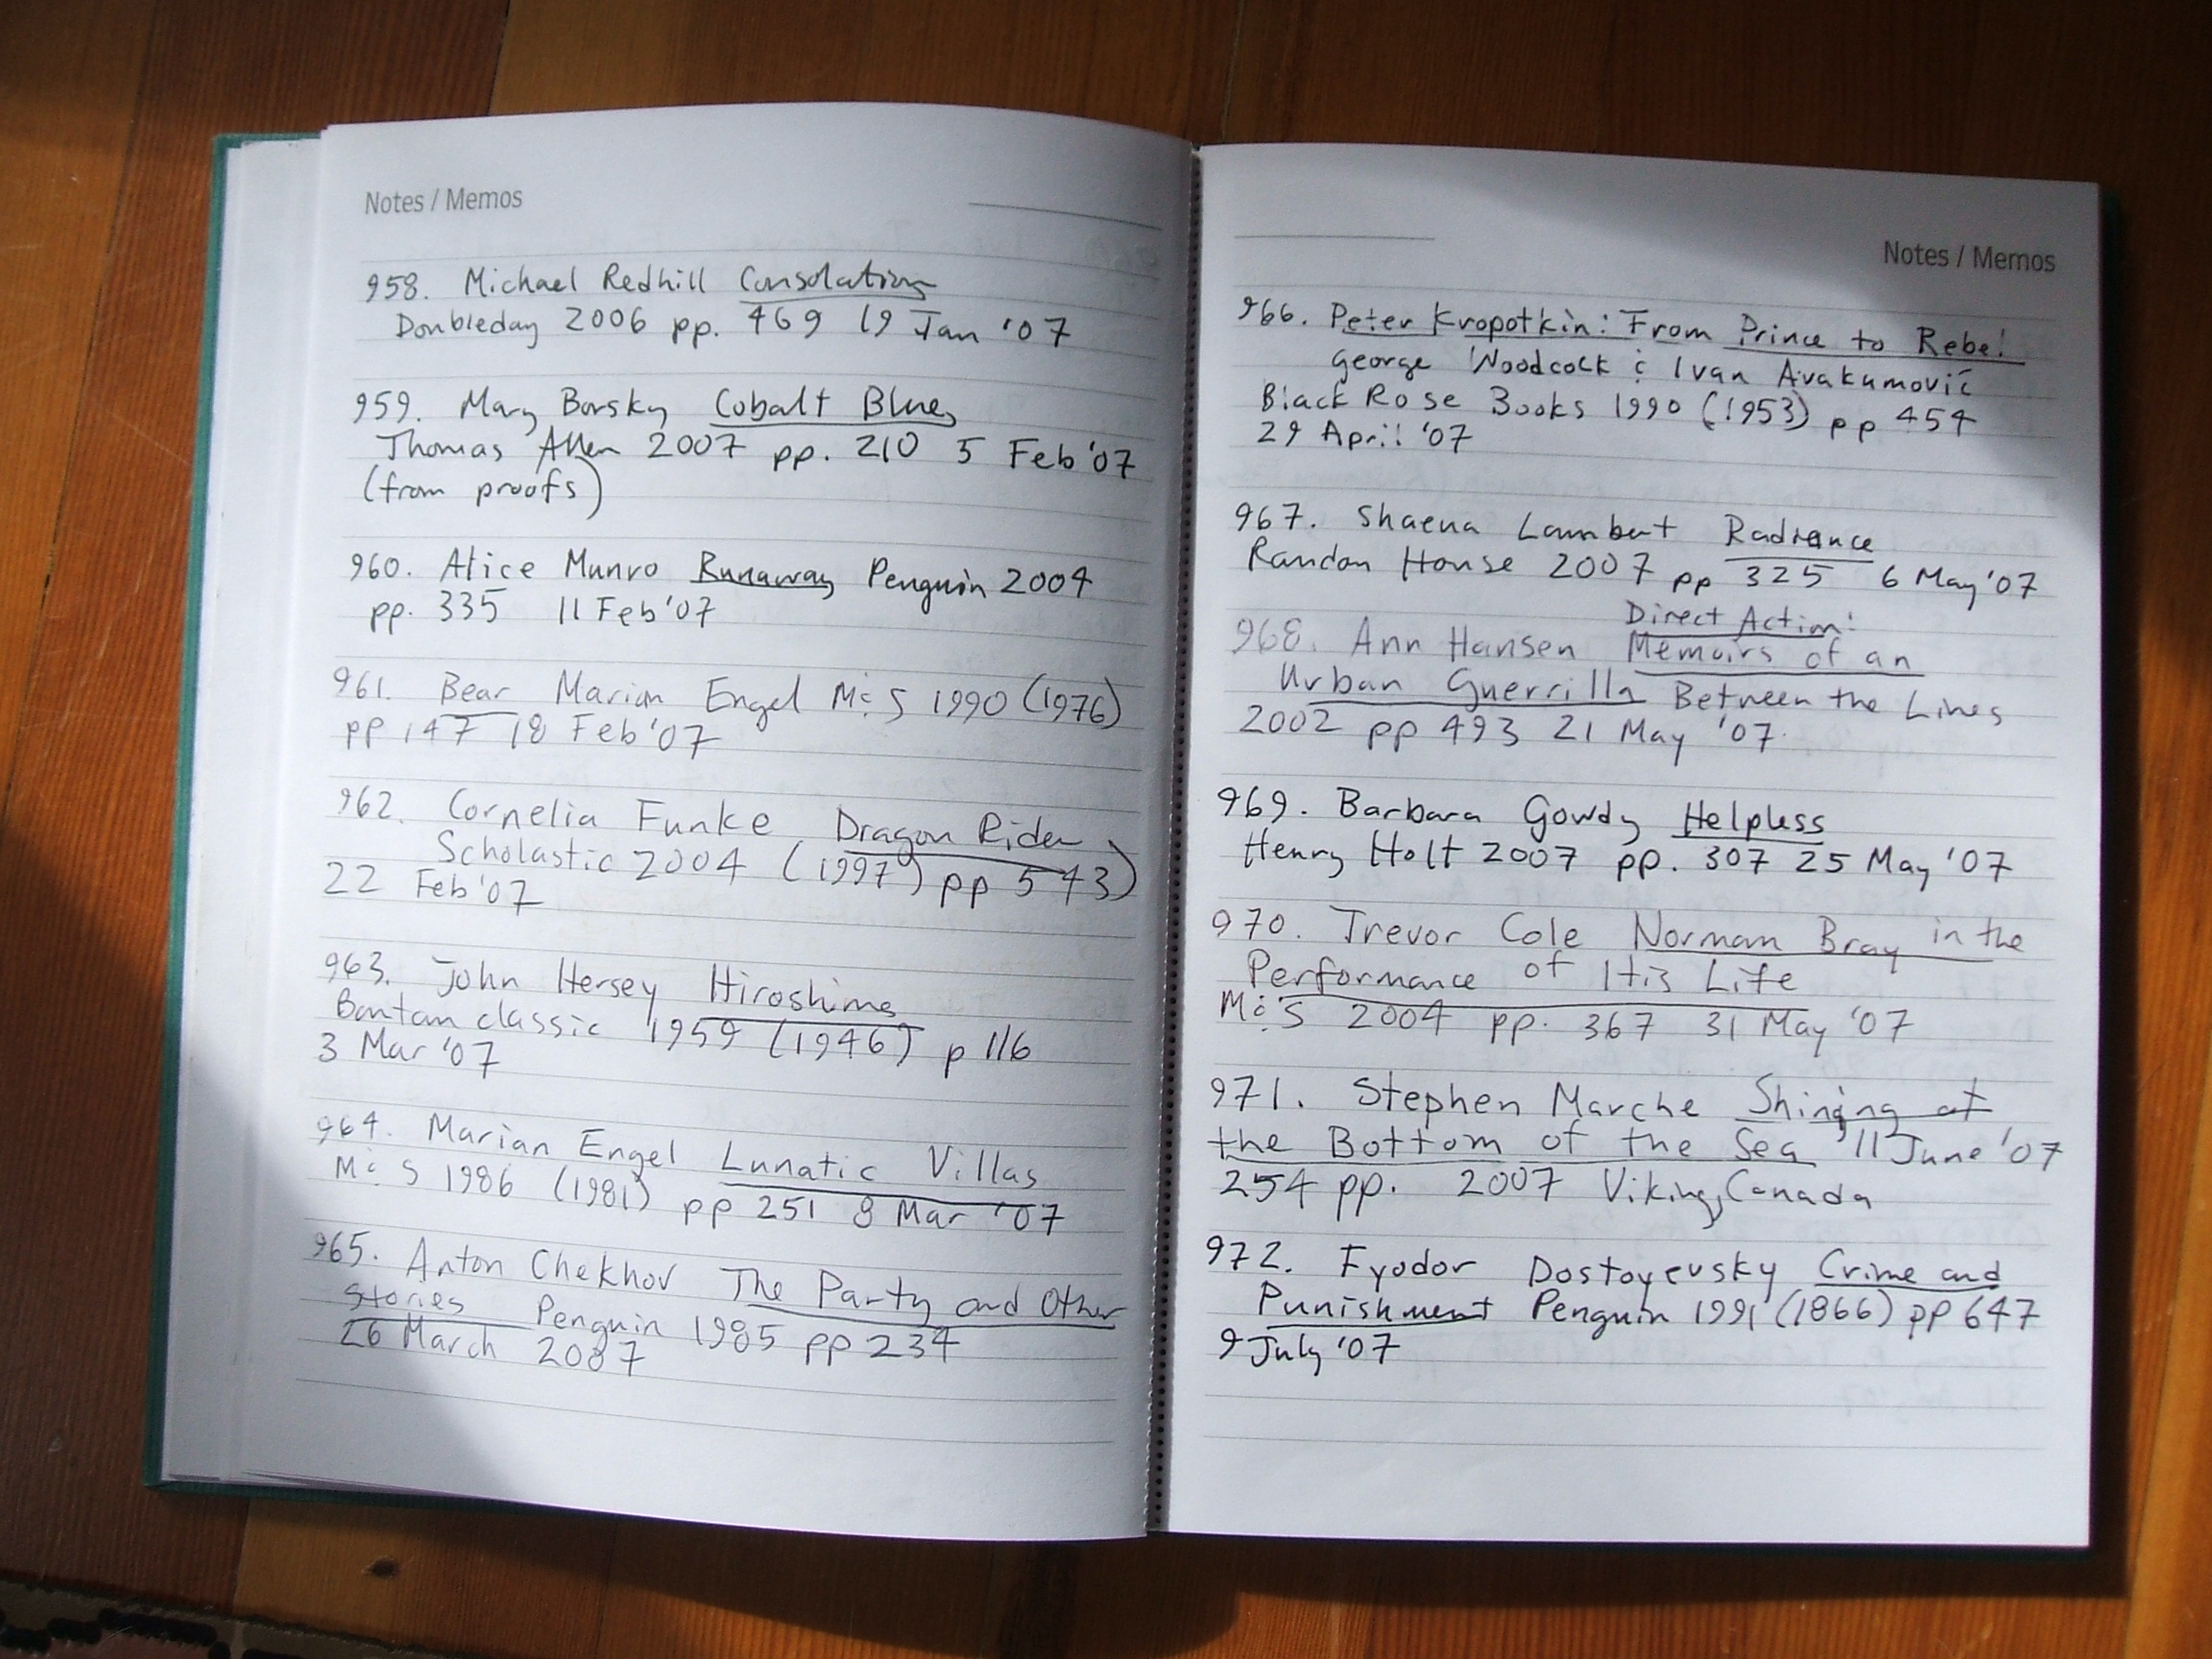 Notes / Memos
958. Michael Redhill Consolation
Doubleday 2006 pp. 469 19 Jan '07
959. Mary Borsky Cobalt Blue
Thomas Allen 2007 pp. 210 5 Feb '07
(from proofs)
960. Alice Munro Runaway Penguin 2004
pp. 335 11 Feb '07
961. Bear Marian Engel M&S 1990 (1976)
pp 147 18 Feb '07
962. Cornelia Funke Dragon Rider
Scholastic 2004 (1997) pp 543)
22 Feb '07
963. John Hersey Hiroshima
Bantam classic 1959 (1946) p 116
3 Mar '07
964. Marian Engel Lunatic Villas
M&S 1986 (1981) pp 251 8 Mar '07
965. Anton Chekhov The Party and Other
Stories Penguin 1985 pp 234
26 March 2007
Notes / Memos
966. Peter Kropotkin: From Prince to Rebel
George Woodcock & Ivan Avakumović
Black Rose Books 1990 (1953) pp 454
29 April '07
967. Shaena Lambert Radiance
Random House 2007 pp 325 6 May '07
Direct Action:
968. Ann Hansen Memoirs of an
Urban Guerrilla Between the Lines
2002 pp 493 21 May '07.
969. Barbara Gowdy Helpless
Henry Holt 2007 pp. 307 25 May '07
970. Trevor Cole Norman Bray in the
Performance of His Life
M&S 2004 pp. 367 31 May '07
971. Stephen Marche Shining at
the Bottom of the Sea 11 June '07
254 pp. 2007 Viking, Canada
972. Fyodor Dostoyevsky Crime and
Punishment Penguin 1991 (1866) pp 647
9 July '07